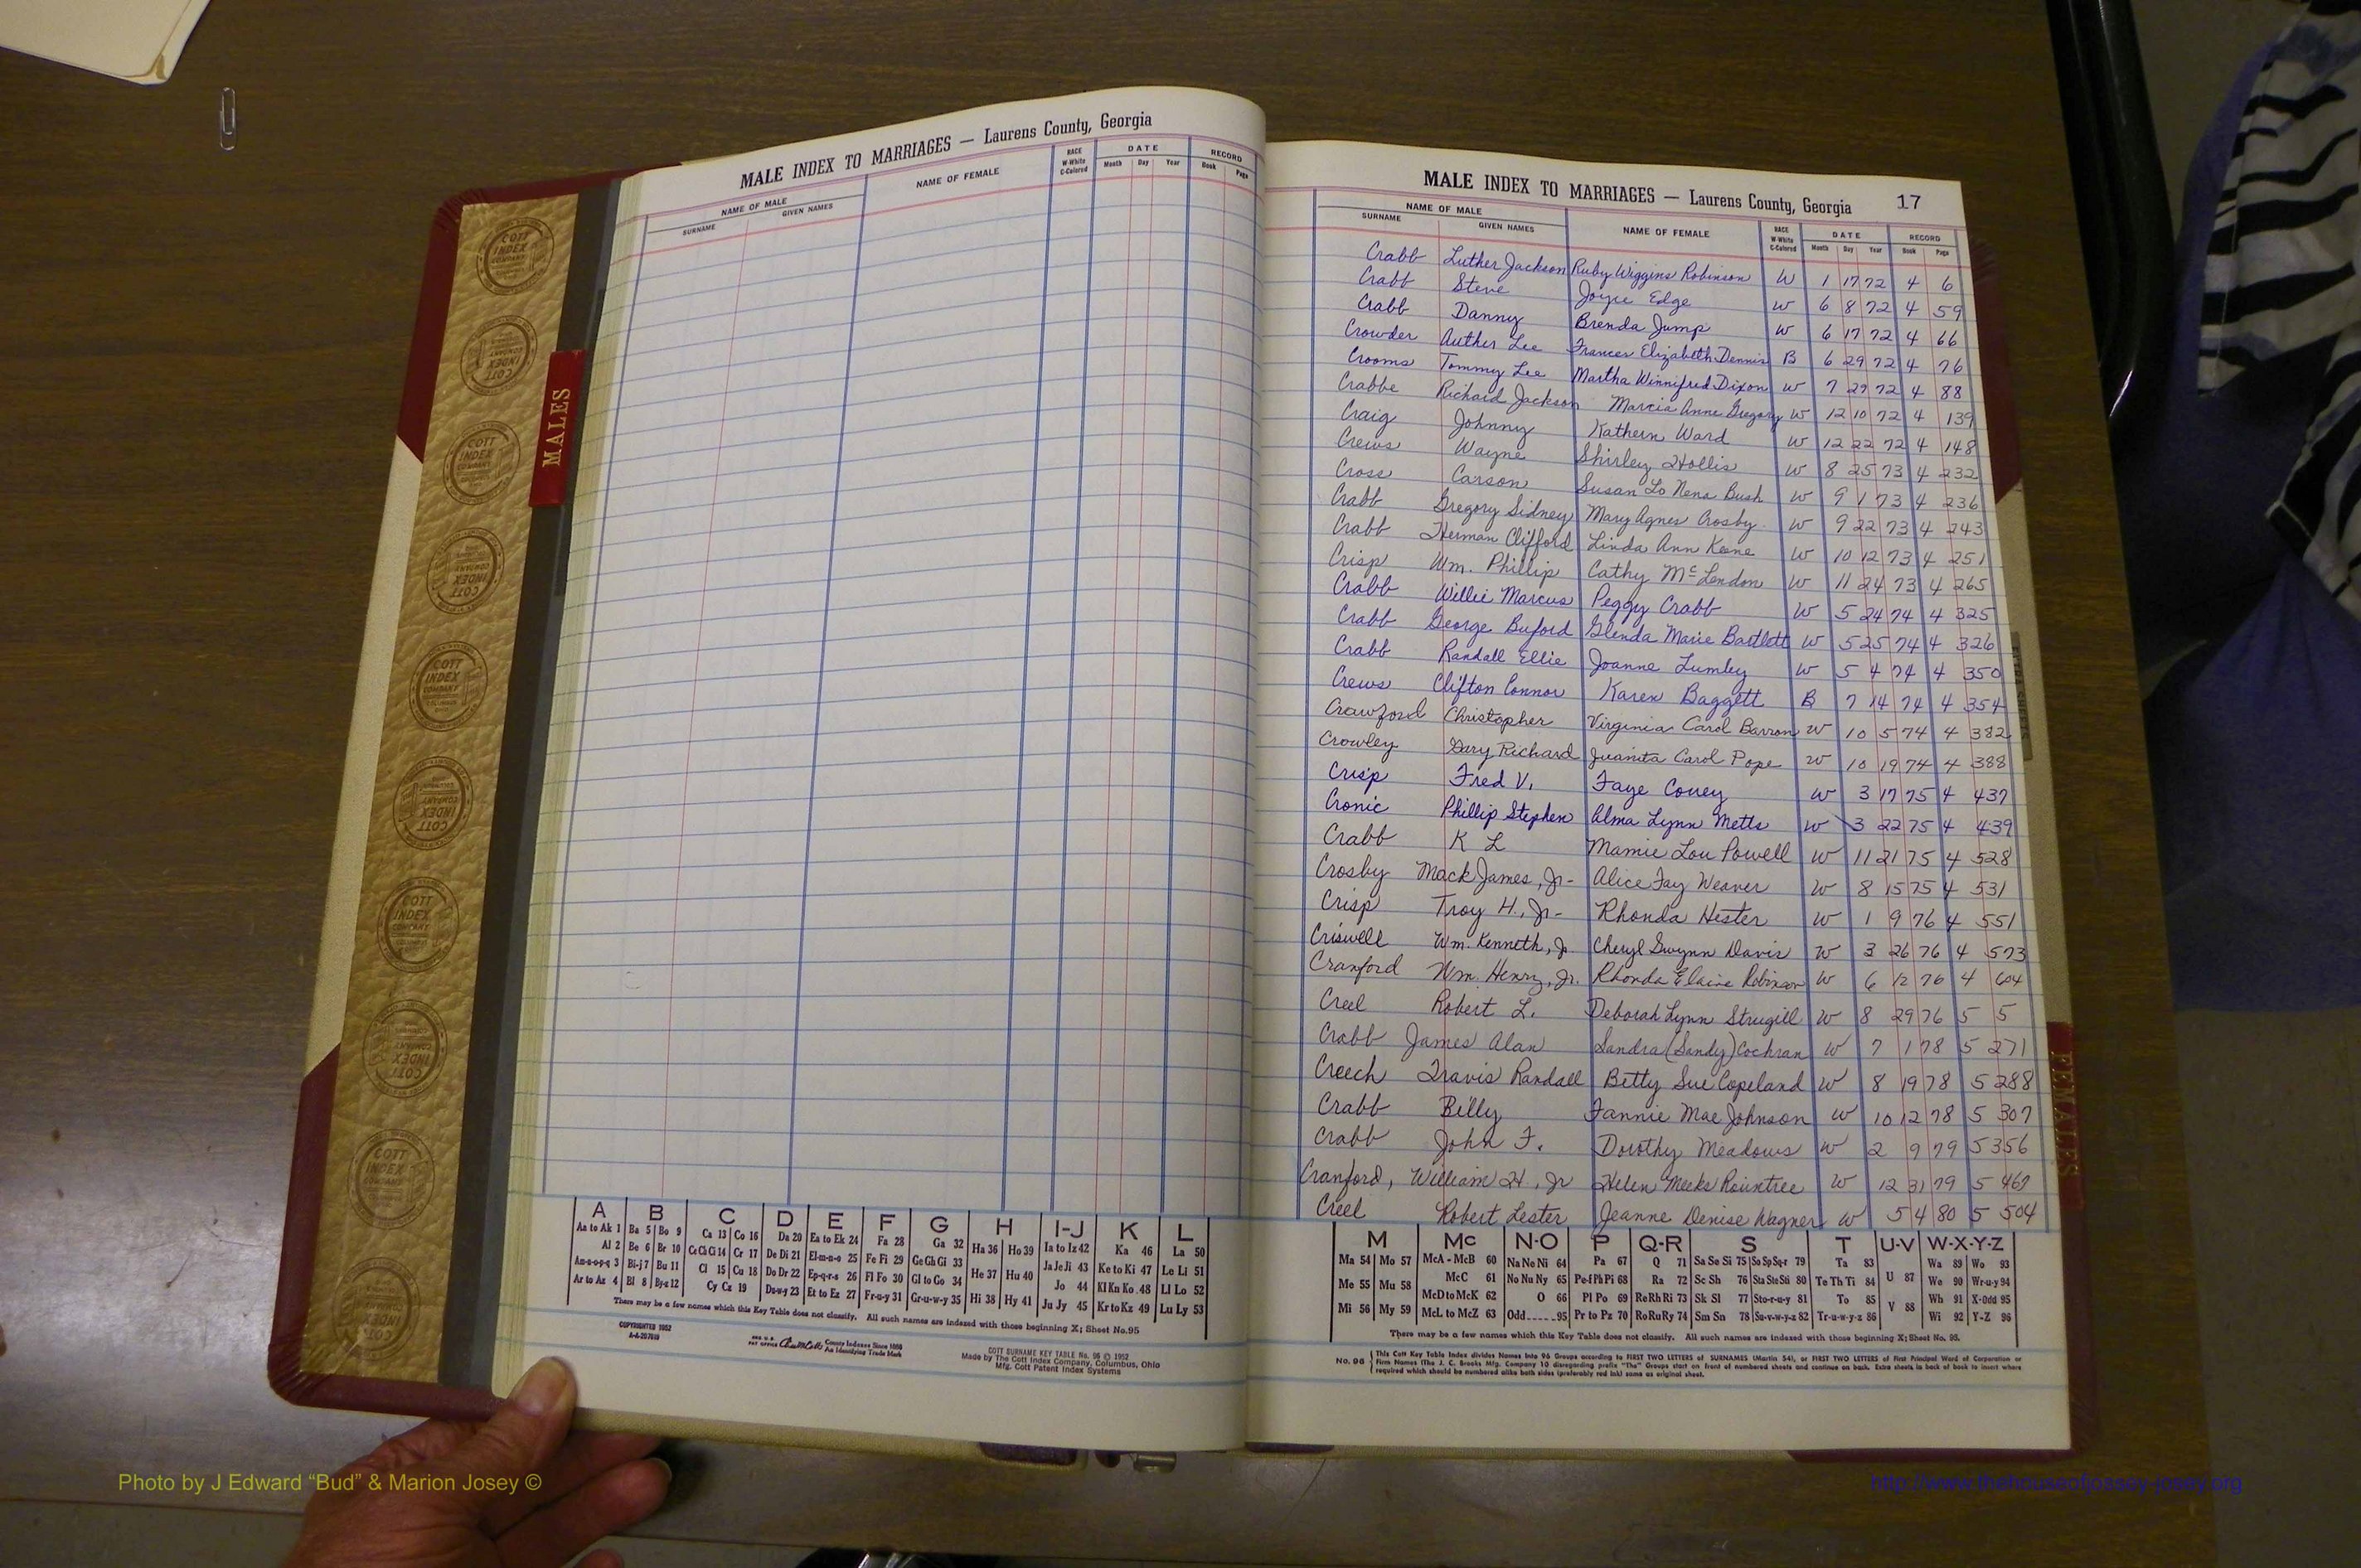 MALE INDEX TO MARRIAGES — Laurens County, Georgia
NAME OF MALE NAME OF FEMALE RACE W-White C-Colored DATE RECORD
SURNAME GIVEN NAMES Month Day Year Book Page
MALES
COTT INDEX COMPANY
A B C D E F G H I-J K L
Aa to Ak 1 Ba 5 Bo 9 Ca 13 Co 16 Da 20 Ea to Ek 24 Fa 28 Ga 32 Ha 36 Ho 39 Ia to Iz 42 Ka 46 La 50
Al 2 Be 6 Br 10 Ce Ch Ci 14 Cr 17 De Di 21 El-m-n-o 25 Fe Fi 29 Ge Gh Gi 33 He 37 Hu 40 Ja Je Ji 43 Ke to Ki 47 Le Li 51
Am-n-o-p-q 3 Bi-j 7 Bu 11 Cl 15 Cu 18 Do Dr 22 Ep-q-r-s 26 Fl Fo 30 Gl to Go 34 Hi 38 Hy 41 Jo 44 Kl Kn Ko 48 Ll Lo 52
Ar to Az 4 Bl 8 By-z 12 Cy Cz 19 Du-w-y 23 Et to Ez 27 Fr-u-y 31 Gr-u-w-y 35 Ju Jy 45 Kr to Kz 49 Lu Ly 53
There may be a few names which this Key Table does not classify. All such names are indexed with those beginning X; Sheet No. 95
COPYRIGHTED 1952
County Indexes Since 1888
An Identifying Trade Mark
COTT SURNAME KEY TABLE No. 96 © 1952
Made by The Cott Index Company, Columbus, Ohio
Mfg. Cott Patent Index Systems
MALE INDEX TO MARRIAGES — Laurens County, Georgia 17
NAME OF MALE NAME OF FEMALE RACE W-White C-Colored DATE RECORD
SURNAME GIVEN NAMES Month Day Year Book Page
Crabb Luther Jackson Ruby Wiggins Robinson W 1 17 72 4 6
Crabb Steve Joyce Edge W 6 8 72 4 59
Crabb Danny Brenda Jump W 6 17 72 4 66
Crowder Auther Lee Frances Elizabeth Dennis B 6 29 72 4 76
Crooms Tommy Lee Martha Winnifred Dixon W 7 29 72 4 88
Crabbe Richard Jackson Marcia Anne Gregory W 12 10 72 4 139
Craig Johnny Kathern Ward W 12 22 72 4 148
Crews Wayne Shirley Hollis W 8 25 73 4 232
Cross Carson Susan Lo Nena Bush W 9 1 73 4 236
Crabb Gregory Sidney Mary Agnes Crosby W 9 22 73 4 243
Crabb Herman Clifford Linda Ann Keene W 10 12 73 4 251
Crisp Wm. Phillip Cathy McLendon W 11 24 73 4 265
Crabb Willie Marcus Peggy Crabb W 5 24 74 4 325
Crabb George Buford Glenda Marie Bartlett W 5 25 74 4 326
Crabb Randall Ellie Joanne Lumley W 5 4 74 4 350
Crews Clifton Connor Karen Baggett B 7 14 74 4 354
Crawford Christopher Virginia Carol Barron W 10 5 74 4 382
Crowley Gary Richard Juanita Carol Pope W 10 19 74 4 388
Crisp Fred V. Faye Covey W 3 17 75 4 437
Cronic Phillip Stephen Alma Lynn Metts W 3 22 75 4 439
Crabb K L Mamie Lou Powell W 11 21 75 4 528
Crosby Mack James, Jr- Alice Fay Weaver W 8 15 75 4 531
Crisp Troy H., Jr- Rhonda Hester W 1 9 76 4 551
Criswell Wm. Kenneth, Jr Cheryl Gwynn Davis W 3 26 76 4 573
Cranford Wm. Henry, Jr. Rhonda Elaine Robinson W 6 12 76 4 604
Creel Robert L. Deborah Lynn Strugill W 8 29 76 5 5
Crabb James Alan Sandra (Sandy) Cochran W 7 1 78 5 271
Creech Travis Randall Betty Sue Copeland W 8 19 78 5 288
Crabb Billy Fannie Mae Johnson W 10 12 78 5 307
Crabb John F. Dorothy Meadows W 2 9 79 5 356
Cranford, William H., Jr Helen Meeks Rountree W 12 31 79 5 467
Creel Robert Lester Jeanne Denise Wagner W 5 4 80 5 504
FEMALES
M Mc N-O P Q-R S T U-V W-X-Y-Z
Ma 54 Mo 57 McA - McB 60 Na Ne Ni 64 Pa 67 Q 71 Sa Se Si 75 So Sp Sq-r 79 Ta 83 U 87 Wa 89 Wo 93
Me 55 Mu 58 McC 61 No Nu Ny 65 Pe-f Ph Pi 68 Ra 72 Sc Sh 76 Sta Ste Sti 80 Te Th Ti 84 V 88 We 90 Wr-u-y 94
McD to McK 62 O 66 Pl Po 69 Re Rh Ri 73 Sk Sl 77 Sto-r-u-y 81 To 85 Wh 91 X-Odd 95
Mi 56 My 59 McL to McZ 63 Odd-----95 Pr to Pz 70 Ro Ru Ry 74 Sm Sn 78 Su-v-w-y-z 82 Tr-u-w-y-z 86 Wi 92 Y-Z 96
There may be a few names which this Key Table does not classify. All such names are indexed with those beginning X; Sheet No. 95.
No. 96 This Cott Key Table Index divides Names into 96 Groups according to FIRST TWO LETTERS of SURNAMES (Martin 54), or FIRST TWO LETTERS of First Principal Word of Corporation or
Firm Names (The J. C. Brooks Mfg. Company 10 disregarding prefix "The" Groups start on front of numbered sheets and continue on back. Extra sheets in back of book to insert where
required which should be numbered alike both sides (preferably red ink) same as original sheet.
Photo by J Edward “Bud” & Marion Josey ©
http://www.thehouseofjossey-josey.org